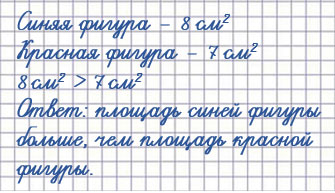 Синяя фигура – 8 см²
Красная фигура – 7 см²
8 см² > 7 см²
Ответ: площадь синей фигуры
больше, чем площадь красной
фигуры.